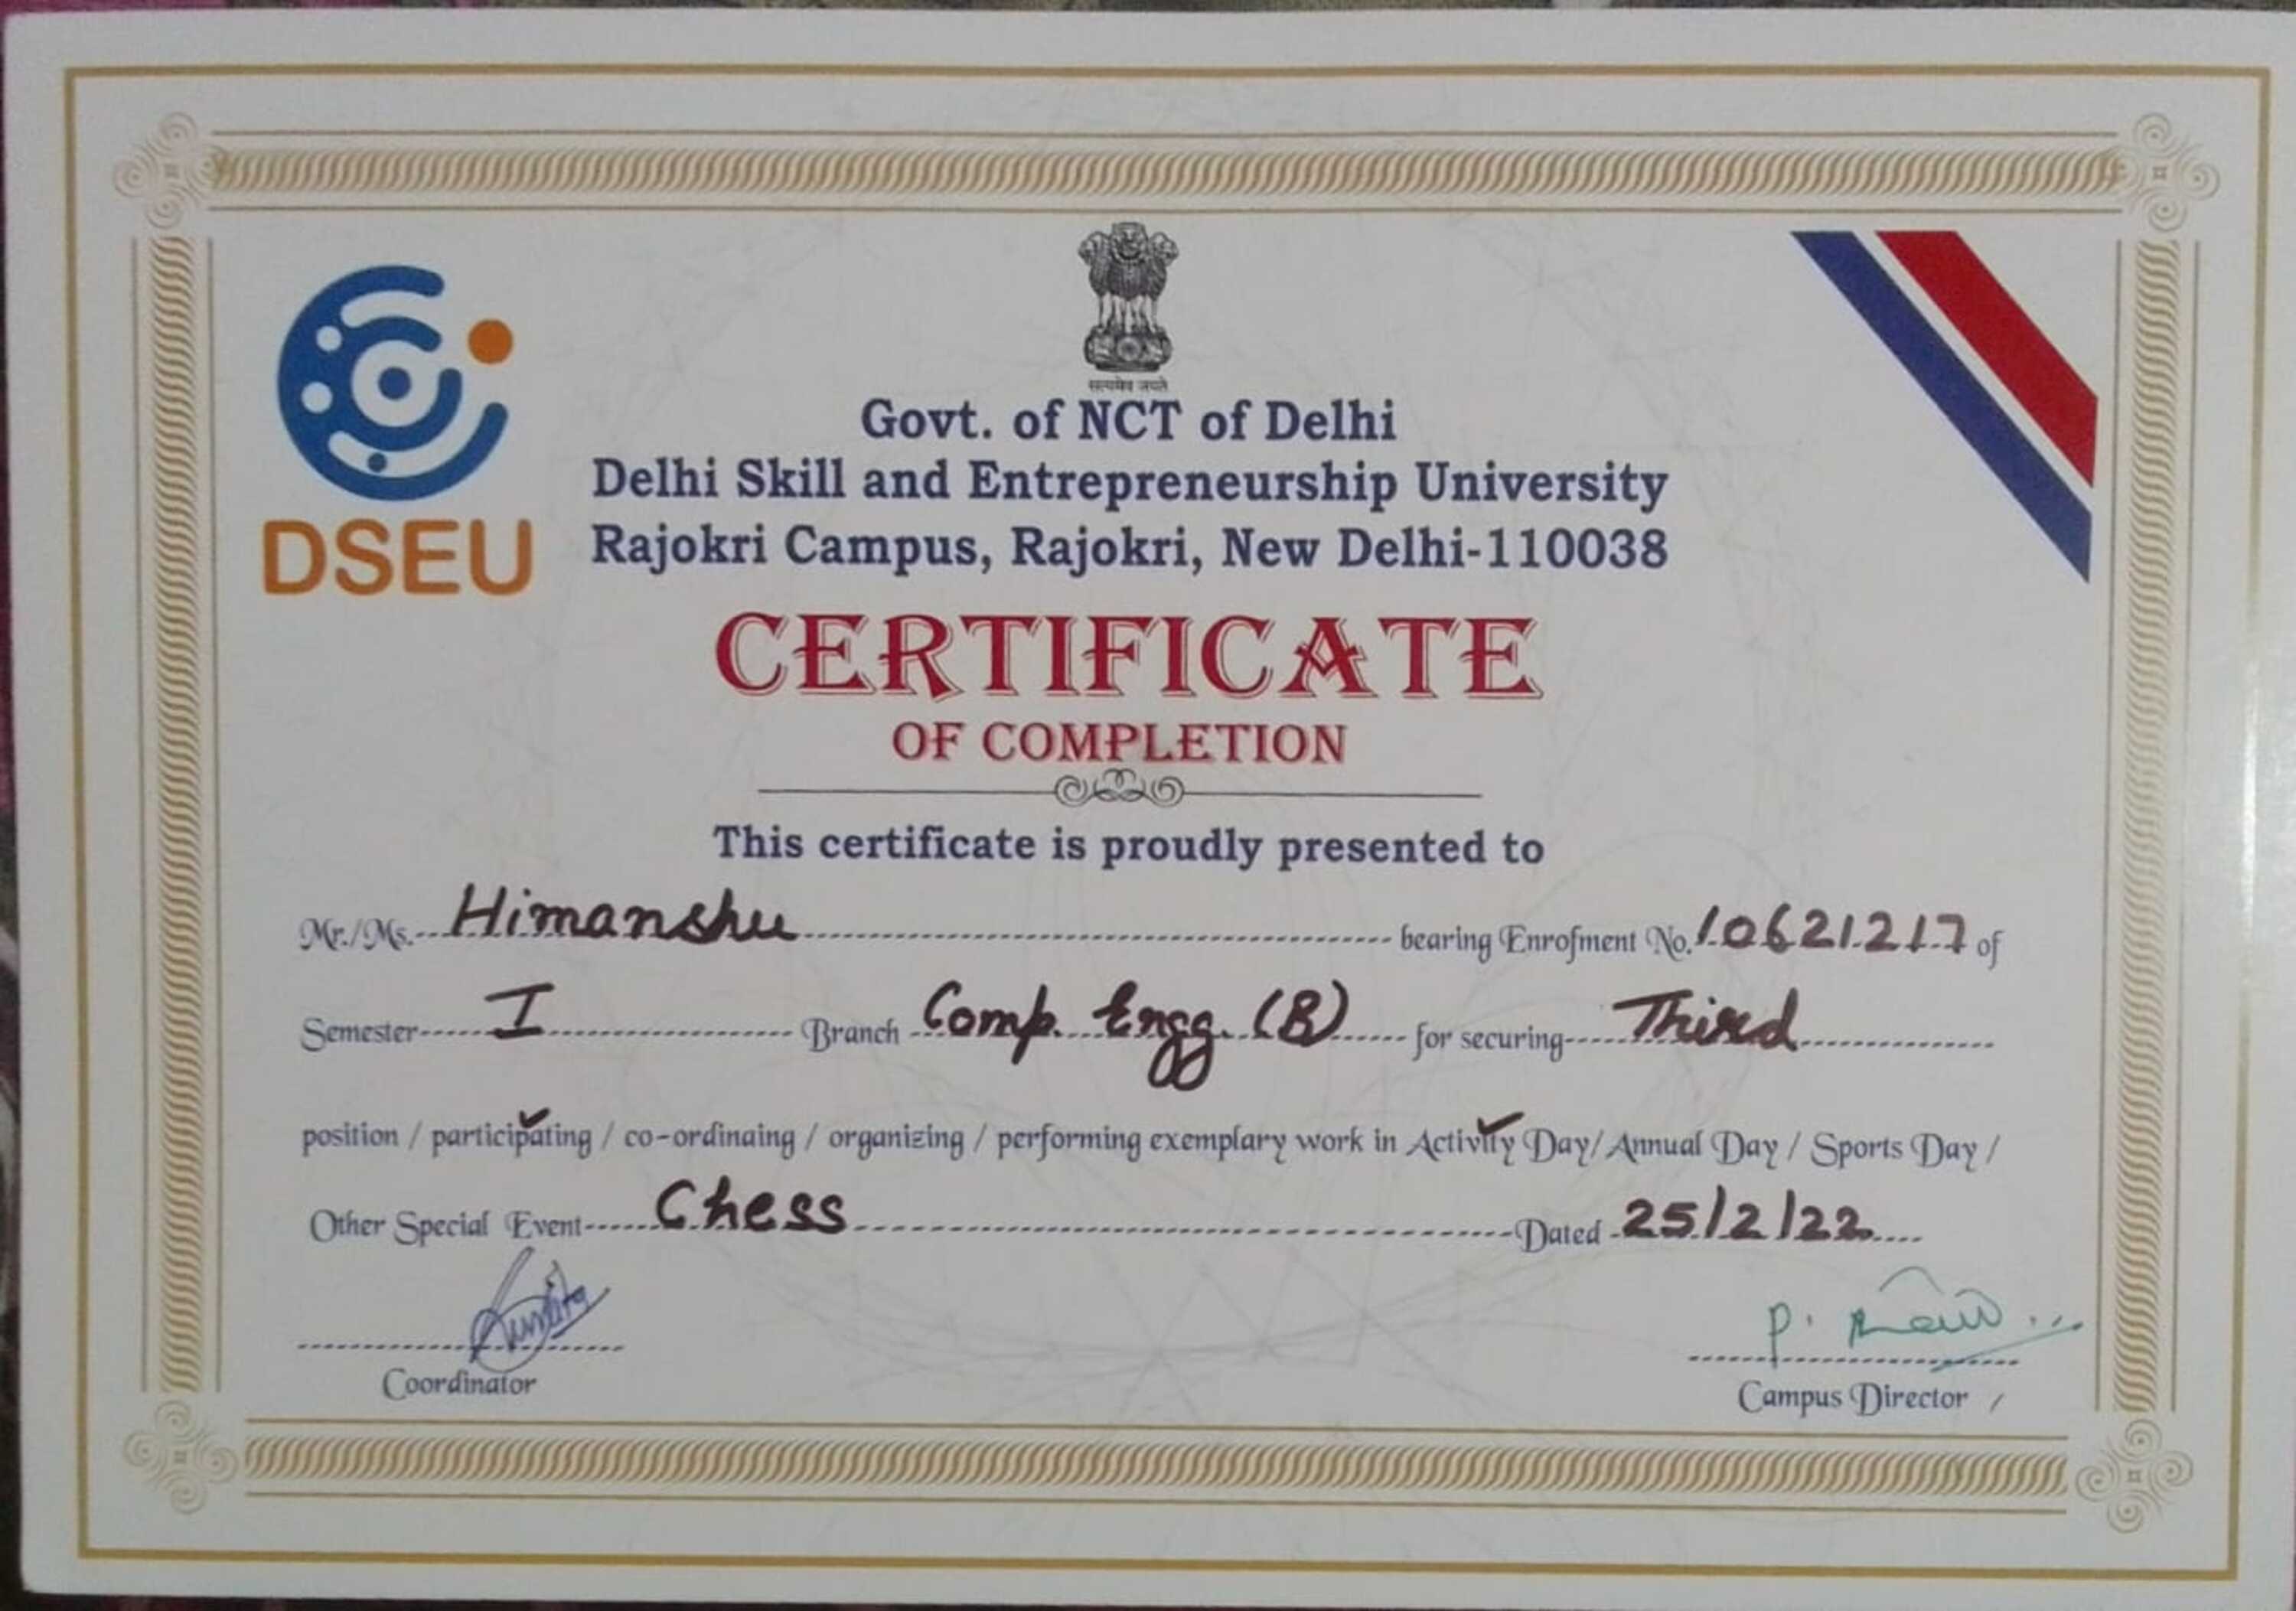 सत्यमेव जयते
Govt. of NCT of Delhi
DSEU
Delhi Skill and Entrepreneurship University
Rajokri Campus, Rajokri, New Delhi-110038
CERTIFICATE
OF COMPLETION
This certificate is proudly presented to
Mr./Ms. Himanshu bearing Enrofment No. 10621217 of
Semester I Branch Comp. Engg. (B) for securing Third
position / participating / co-ordinaing / organizing / performing exemplary work in Activity Day/ Annual Day / Sports Day /
Other Special Event Chess Dated 25/2/22
Coordinator
P.
Campus Director